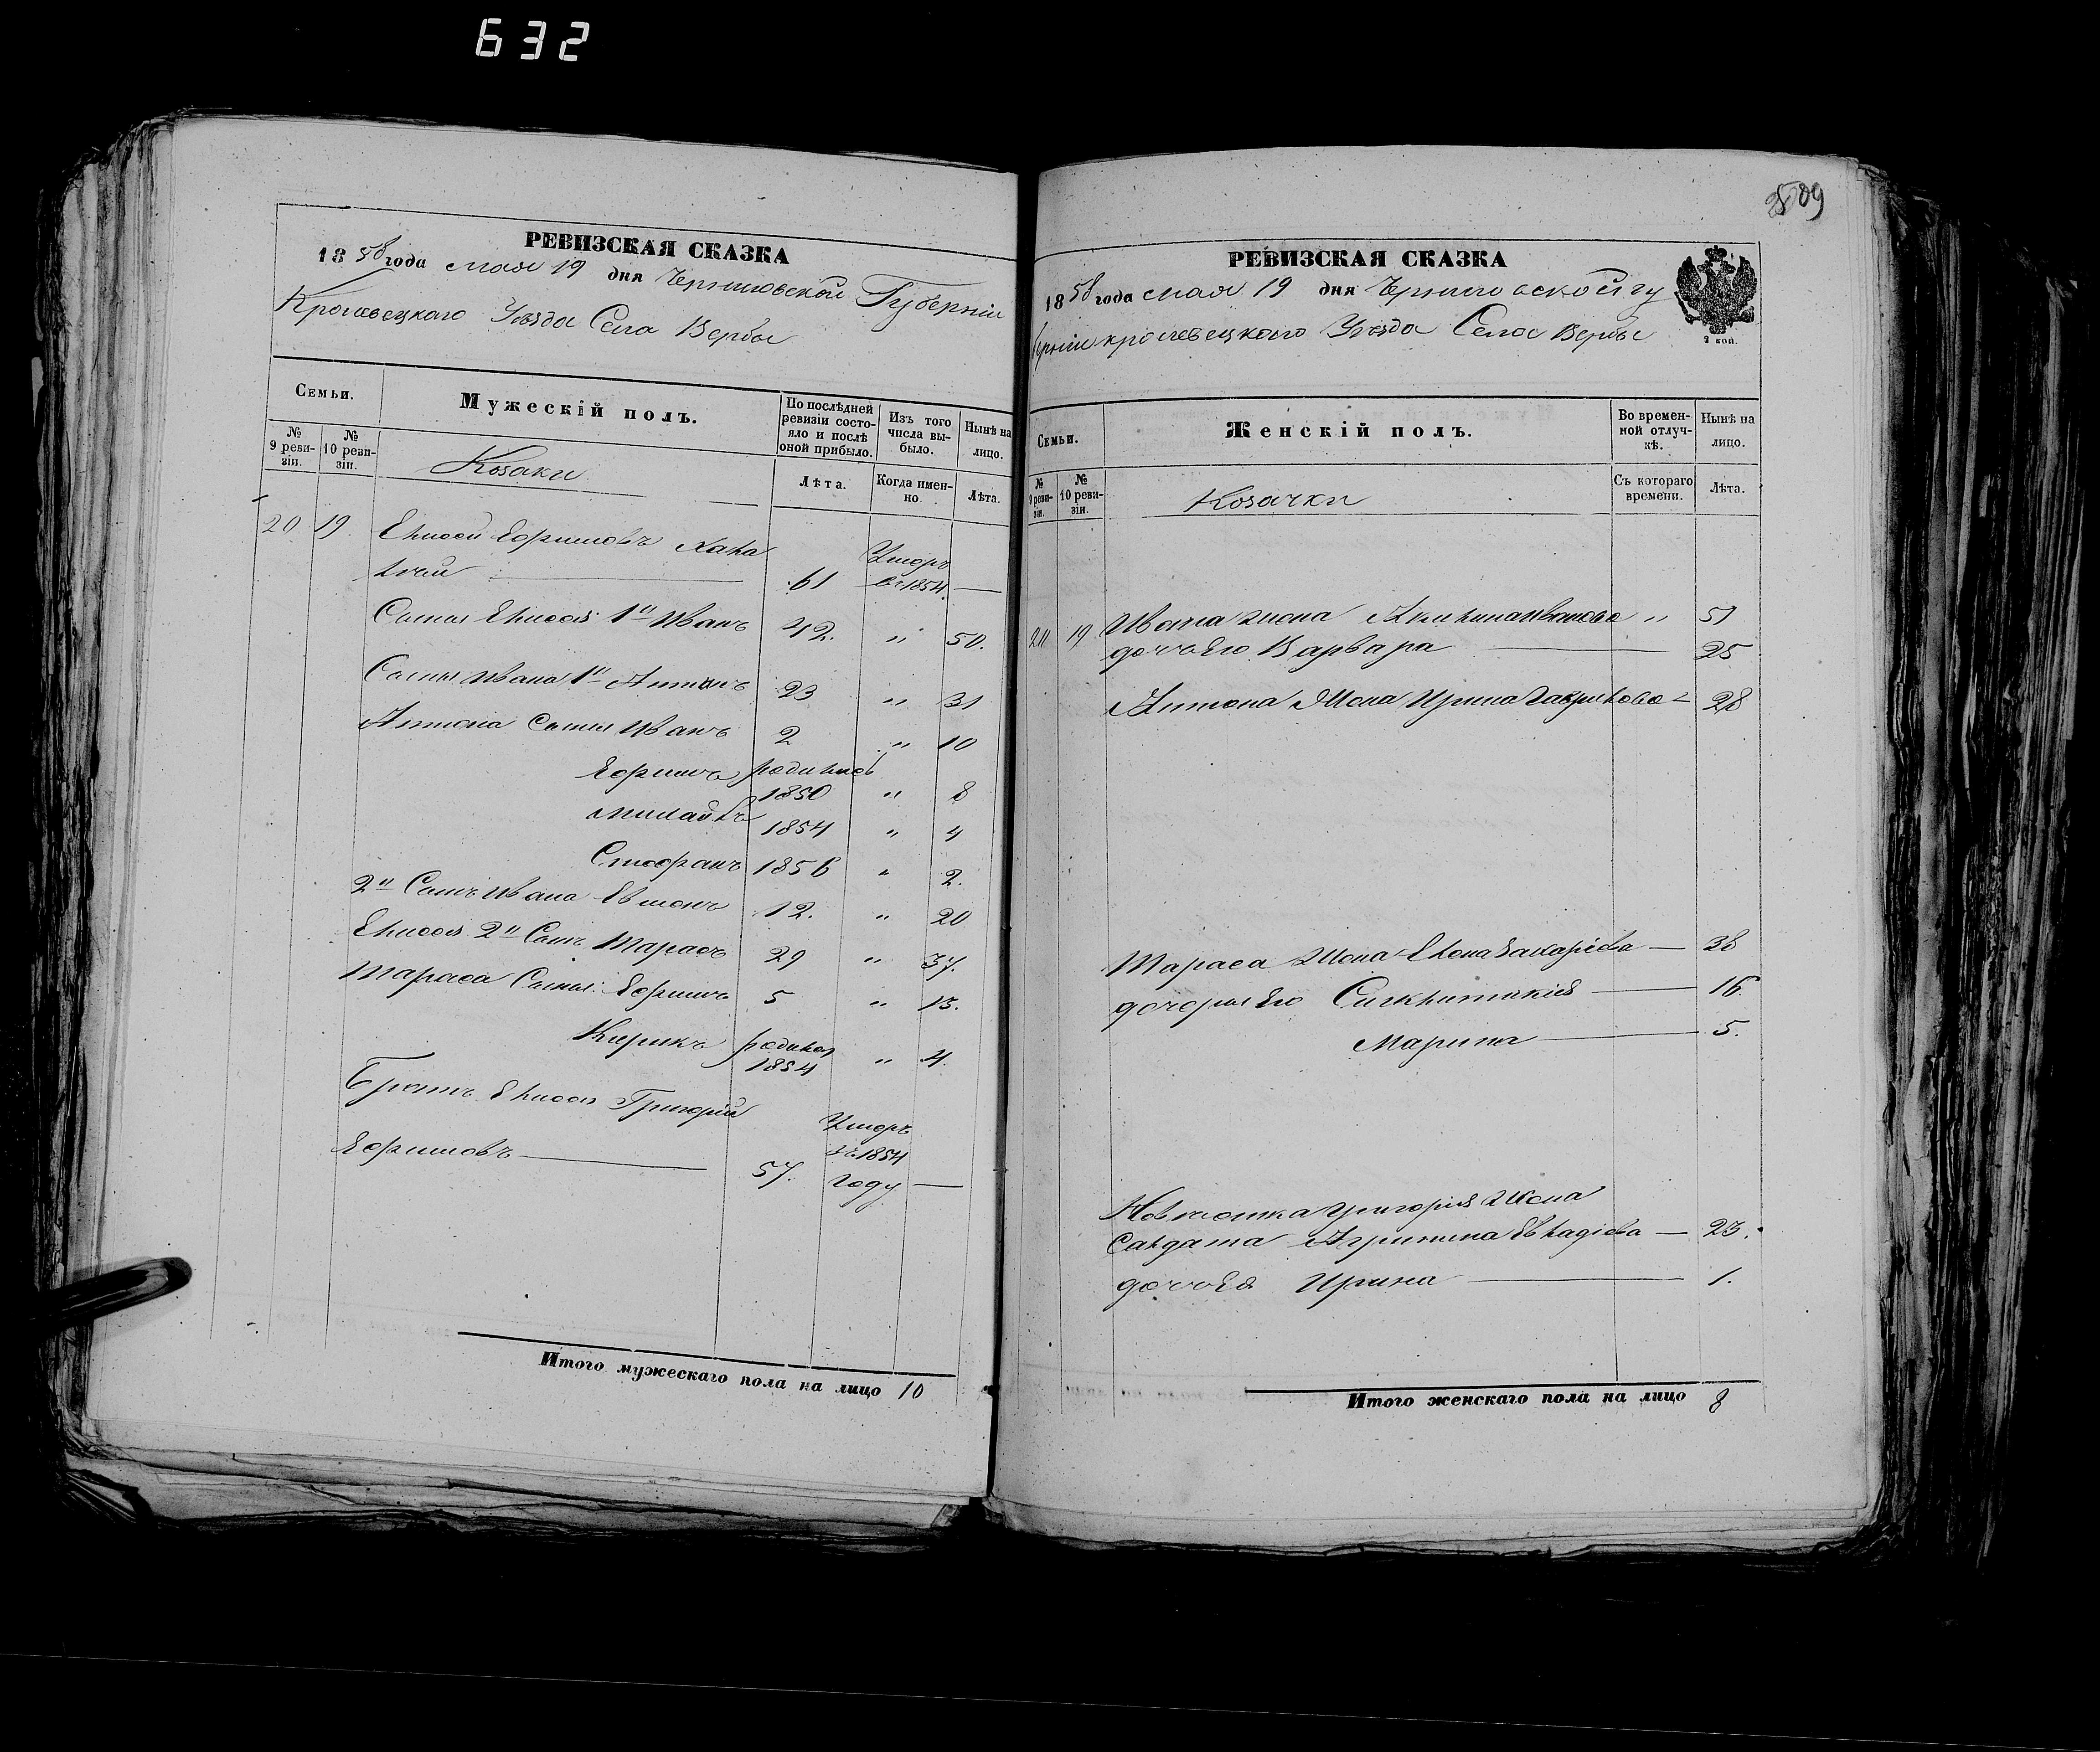 632
РЕВИЗСКАЯ СКАЗКА
1858 года мая 19 дня Черниговской Губерніи
Кролевецкаго Уѣзда Села Вербы
Семьи.
Мужескій полъ.
По послѣдней ревизіи состояло и послѣ оной прибыло.
Изъ того числа выбыло.
Нынѣ на лицо.
№ 9 ревизіи.
№ 10 ревизіи.
Козаки
Лѣта.
Когда именно.
Лѣта.
20 19 Елисей Ефимовъ
61 Умеръ въ 1854 —
Сыны Елисея 1й Иванъ 42. " 50.
Сыны Ивана 1й Антонъ 23 " 31
Антона Сыны Иванъ 2 " 10
Ефимъ родились 1850 " 8
1854 " 4
Стефанъ 1856 " 2.
2й Сынъ Ивана 12. " 20
Елисея 2й Сынъ Тарасъ 29 " 37.
Тараса Сыны Ефимъ 5 " 13.
Кирикъ родился 1854 " 4.
Братъ Елисея Григорій
Ефимовъ — 57. Умеръ въ 1854 году —
Итого мужескаго пола на лицо 10
РЕВИЗСКАЯ СКАЗКА
1858 года мая 19 дня Черниговской Гу
берніи Кролевецкаго Уѣзда Села Вербы
2 коп.
Семьи.
Женскій полъ.
Во временной отлучкѣ.
Нынѣ на лицо.
№ 9 ревизіи.
№ 10 ревизіи.
Козачки
Съ котораго времени.
Лѣта.
19 Ивана жена Акилина Иванова " 51
дочь Его Варвара — 25
Антона Жена Ирина Гаврилова — 28
Тараса Жена Елена Захаріева — 38
дочери Его — 16.
Марина — 5.
Григорія Жена
Салдата — 23.
дочь Ея Ирина — 1.
Итого женскаго пола на лицо 8